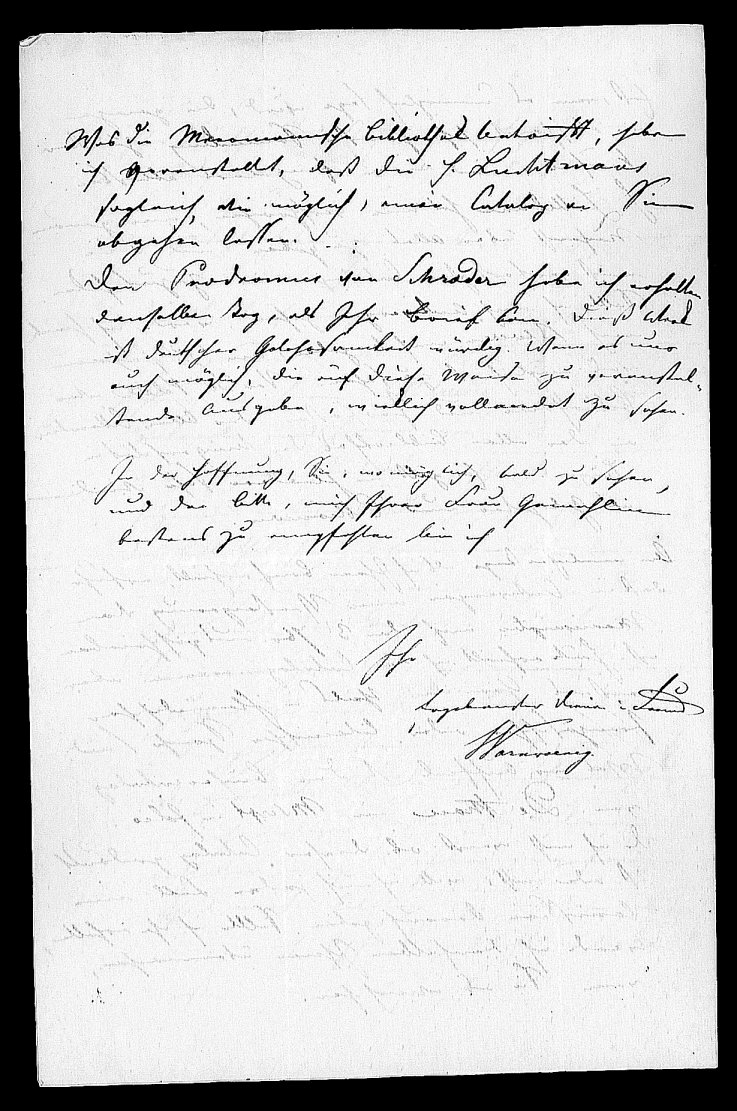 Was die Meermannische Bibliothek betrifft, habe
ich veranstaltet, daß die H. Luchtmans
sogleich, wie möglich, einen Catalog an Sie
abgehen lassen.
Den Prodromus von Schrader habe ich erhalten
denselben Tag, als Ihr Brief kam. Dieß Werk
ist deutscher Gelehrsamkeit würdig. Wenn es nur
auch möglich, die auf diese Weise zu veranstal-
tende Ausgabe, wirklich vollendet zu sehen.
In der Hoffnung, Sie, wo möglich, bald zu sehen,
und der Bitte, mich Ihrer Frau Gemahlinn
bestens zu empfehlen bin ich
Ihr
ergebenster Diener u. Freund
Warnkoenig